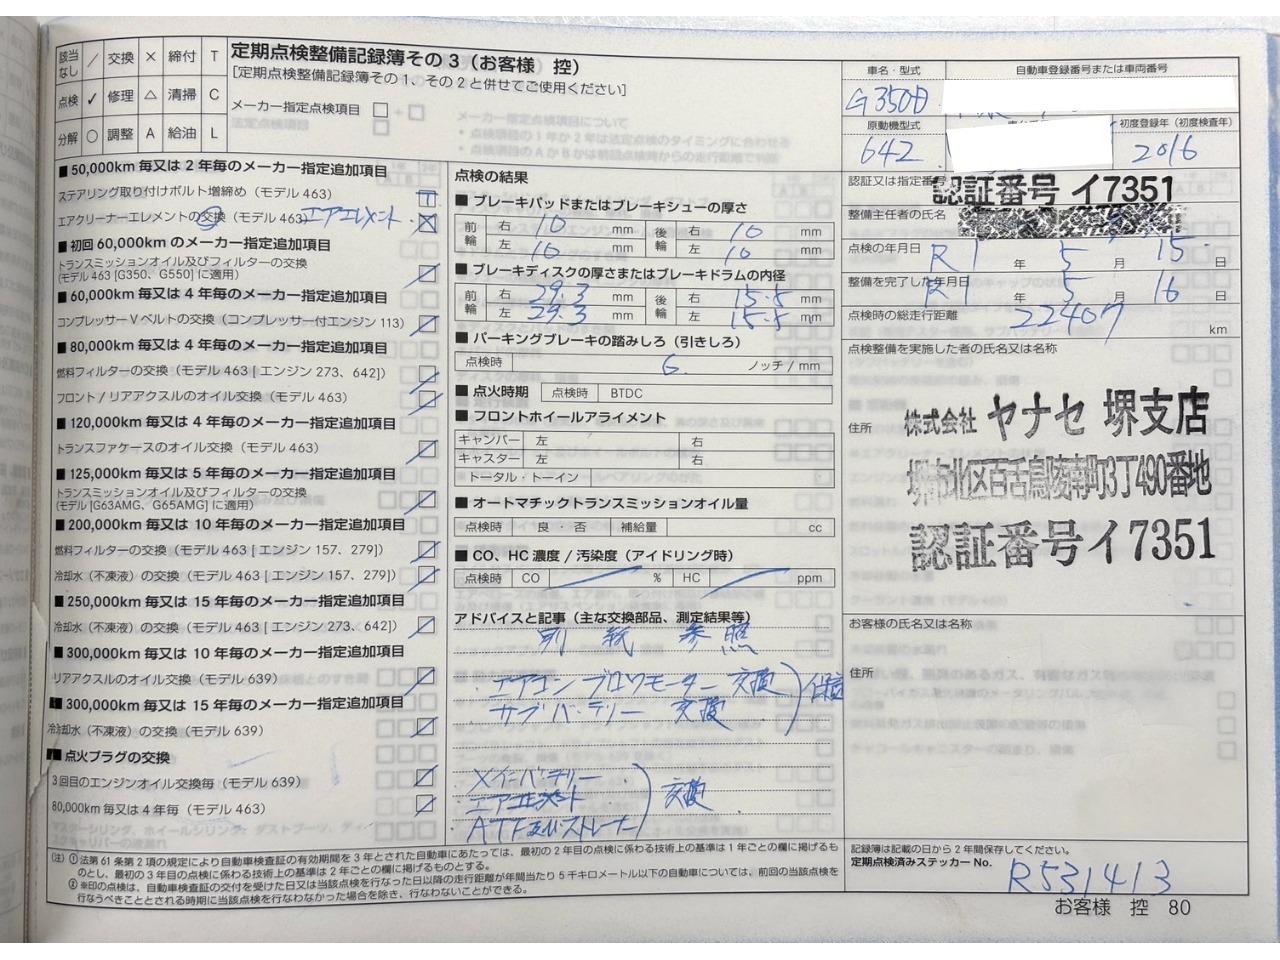 該当なし ／ 交換 × 締付 T
点検 ✓ 修理 △ 清掃 C
分解 ○ 調整 A 給油 L
定期点検整備記録簿その3（お客様 控）
[定期点検整備記録簿その1、その2と併せてご使用ください]
メーカー指定点検項目 □ + □
■ 50,000km 毎又は 2 年毎のメーカー指定追加項目
ステアリング取り付けボルト増締め（モデル 463） T
エアクリーナーエレメントの交換（モデル 463） エアエレメント ×
■ 初回 60,000km のメーカー指定追加項目
トランスミッションオイル及びフィルターの交換
(モデル 463 [G350、G550] に適用)
■ 60,000km 毎又は 4 年毎のメーカー指定追加項目
コンプレッサー V ベルトの交換（コンプレッサー付エンジン 113）
■ 80,000km 毎又は 4 年毎のメーカー指定追加項目
燃料フィルターの交換（モデル 463 [ エンジン 273、642]）
フロント / リアアクスルのオイル交換（モデル 463）
■ 120,000km 毎又は 4 年毎のメーカー指定追加項目
トランスファケースのオイル交換（モデル 463）
■ 125,000km 毎又は 5 年毎のメーカー指定追加項目
トランスミッションオイル及びフィルターの交換
(モデル [G63AMG、G65AMG] に適用)
■ 200,000km 毎又は 10 年毎のメーカー指定追加項目
燃料フィルターの交換（モデル 463 [ エンジン 157、279]）
冷却水（不凍液）の交換（モデル 463 [ エンジン 157、279]）
■ 250,000km 毎又は 15 年毎のメーカー指定追加項目
冷却水（不凍液）の交換（モデル 463 [ エンジン 273、642]）
■ 300,000km 毎又は 10 年毎のメーカー指定追加項目
リアアクスルのオイル交換（モデル 639）
■ 300,000km 毎又は 15 年毎のメーカー指定追加項目
冷却水（不凍液）の交換（モデル 639）
■ 点火プラグの交換
3 回目のエンジンオイル交換毎（モデル 639）
80,000km 毎又は 4 年毎（モデル 463）
点検の結果
■ ブレーキパッドまたはブレーキシューの厚さ
前輪 右 10 mm 後輪 右 10 mm
左 10 mm 左 10 mm
■ ブレーキディスクの厚さまたはブレーキドラムの内径
前輪 右 29.3 mm 後輪 右 15.5 mm
左 29.3 mm 左 15.5 mm
■ パーキングブレーキの踏みしろ（引きしろ）
点検時 6 ノッチ / mm
■ 点火時期 点検時 BTDC
■ フロントホイールアライメント
キャンバー 左 右
キャスター 左 右
トータル・トーイン
■ オートマチックトランスミッションオイル量
点検時 良・否 補給量 cc
■ CO、HC 濃度 / 汚染度（アイドリング時）
点検時 CO % HC ppm
アドバイスと記事（主な交換部品、測定結果等）
別 紙 参 照
エアコン ブロワモーター 交換
サブバッテリー 交換
メインバッテリー
エアエレメント 交換
ATF及びストレーナー
車名・型式 自動車登録番号または車両番号
G350d
原動機型式 初度登録年（初度検査年）
642 2016
認証又は指定番号 認証番号 イ7351
整備主任者の氏名
点検の年月日 R1 年 5 月 15 日
整備を完了した年月日 R1 年 5 月 16 日
点検時の総走行距離 22407 km
点検整備を実施した者の氏名又は名称
住所
株式会社 ヤナセ 堺支店
堺市北区百舌鳥陵南町3丁490番地
認証番号イ7351
お客様の氏名又は名称
住所
(注) ① 法第 61 条第 2 項の規定により自動車検査証の有効期間を 3 年とされた自動車にあたっては、最初の 2 年目の点検に係わる技術上の基準は 1 年ごとの欄に掲げるものとし、最初の 3 年目の点検に係わる技術上の基準は 2 年ごとの欄に掲げるものとする。
② ※印の点検は、自動車検査証の交付を受けた日又は当該点検を行なった日以降の走行距離が年間当たり 5 千キロメートル以下の自動車については、前回の当該点検を行なうべきこととされる時期に当該点検を行なわなかった場合を除き、行なわないことができる。
記録簿は記載の日から 2 年間保存してください。
定期点検済みステッカー No.
R531413
お客様 控 80